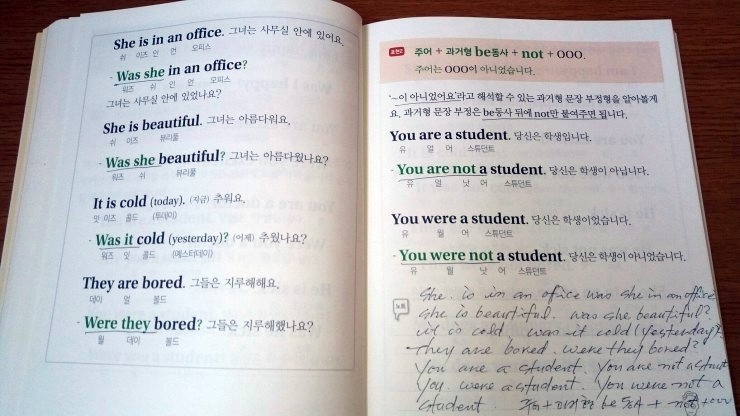 She is in an office. 그녀는 사무실 안에 있어요.
쉬 이즈 인 언 오피스
- Was she in an office?
워즈 쉬 인 언 오피스
그녀는 사무실 안에 있었나요?
She is beautiful. 그녀는 아름다워요.
쉬 이즈 뷰리풀
- Was she beautiful? 그녀는 아름다웠나요?
워즈 쉬 뷰리풀
It is cold (today). (지금) 추워요.
잇 이즈 콜드 (투데이)
- Was it cold (yesterday)? (어제) 추웠나요?
워즈 잇 콜드 (예스터데이)
They are bored. 그들은 지루해해요.
데이 얼 볼드
- Were they bored? 그들은 지루해했나요?
월 데이 볼드
표현2 주어 + 과거형 be동사 + not + OOO.
주어는 OOO이 아니었습니다.
'~이 아니었어요'라고 해석할 수 있는 과거형 문장 부정형을 알아볼게
요. 과거형 문장 부정은 be동사 뒤에 not만 붙여주면 됩니다.
You are a student. 당신은 학생입니다.
유 얼 어 스튜던트
- You are not a student. 당신은 학생이 아닙니다.
유 얼 낫 어 스튜던트
You were a student. 당신은 학생이었습니다.
유 월 어 스튜던트
- You were not a student. 당신은 학생이 아니었습니다.
유 월 낫 어 스튜던트
노트
She is in an office was she in an office
she is beautiful. was she beautiful?
it is cold. was it cold (yesterday)?
they are bored. were they bored?
You are a student. You are not a
You were a student. You were not a
student. 주어 + 과거형 be동사 + not + ooo